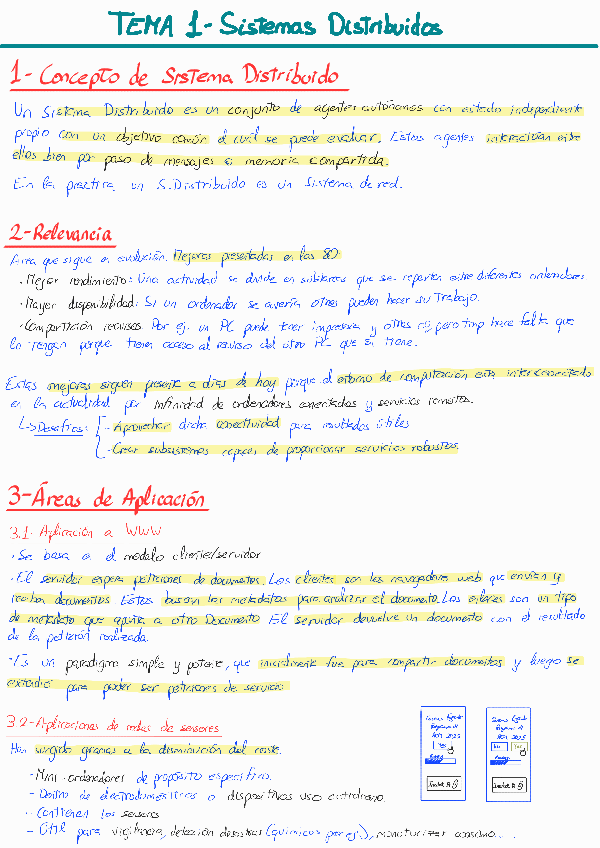 TEMA 1- Sistemas Distribuidos
1- Concepto de Sistema Distribuido
Un Sistema Distribuido es un conjunto de agentes autónomos con estado independiente
propio con un objetivo común el cual se puede evaluar. Estos agentes interactúan entre
ellos bien por paso de mensajes o memoria compartida.
En la práctica un S.Distribuido es un sistema de red.
2-Relevancia
Área que sigue en evolución. Mejoras presentadas en los 80:
· Mejor rendimiento: Una actividad se divide en subtareas que se reparten entre diferentes ordenadores
· Mayor disponibilidad: Si un ordenador se avería otros pueden hacer su trabajo.
· Compartición recursos Por ej. un PC puede tener impresora y otros no, pero tmp hace falta que
la tengan porque tienen acceso al recurso del otro PC que sí tiene.
Estas mejoras siguen presente a días de hoy porque el entorno de computación está interconectado
en la actualidad por infinidad de ordenadores conectados y servicios remotos.
Desafíos: - Aprovechar dicha conectividad para resultados útiles
- Crear subsistemas capaces de proporcionar servicios robustos.
3-Áreas de Aplicación
3.1- Aplicación a WWW
· Se basa en el modelo cliente/servidor
· El servidor espera peticiones de documentos. Los clientes son los navegadores web que envían y
reciben documentos. Estos buscan los metadatos para analizar el documento. Los enlaces son un tipo
de metadato que apunta a otro Documento El servidor devuelve un documento con el resultado
de la petición realizada.
· Es un paradigma simple y potente, que inicialmente fue para compartir documentos y luego se
extendió para poder ser peticiones de servicio
3.2-Aplicaciones de redes de sensores
Han surgido gracias a la disminución del coste.
- Mini-ordenadores de propósito específico.
- Dentro de electrodomésticos o dispositivos uso cotidiano.
- Contienen los sensores
- Útil para vigilancia, detección desastres (químicos por ej.), monitorizar consumo...